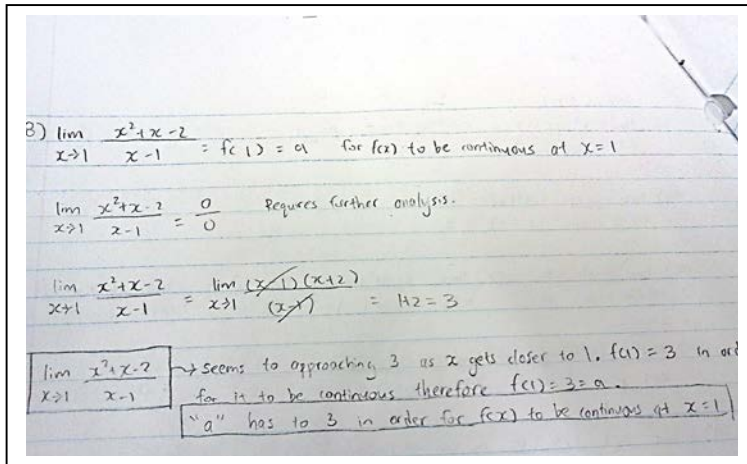 3) lim x→1 x²+x-2 / x-1 = f(1) = a for f(x) to be continuous at x=1
lim x→1 x²+x-2 / x-1 = 0/0 Requres further analysis.
lim x→1 x²+x-2 / x-1 = lim x→1 (x-1)(x+2) / (x-1) = 1+2 = 3
lim x→1 x²+x-2 / x-1 → seems to approaching 3 as x gets closer to 1. f(1) = 3 in ord
for it to be continuous therefore f(1) = 3 = a.
"a" has to 3 in order for f(x) to be continuous at x=1